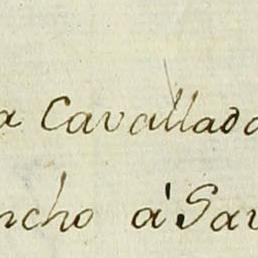 a Cavallada
ncho à Sav